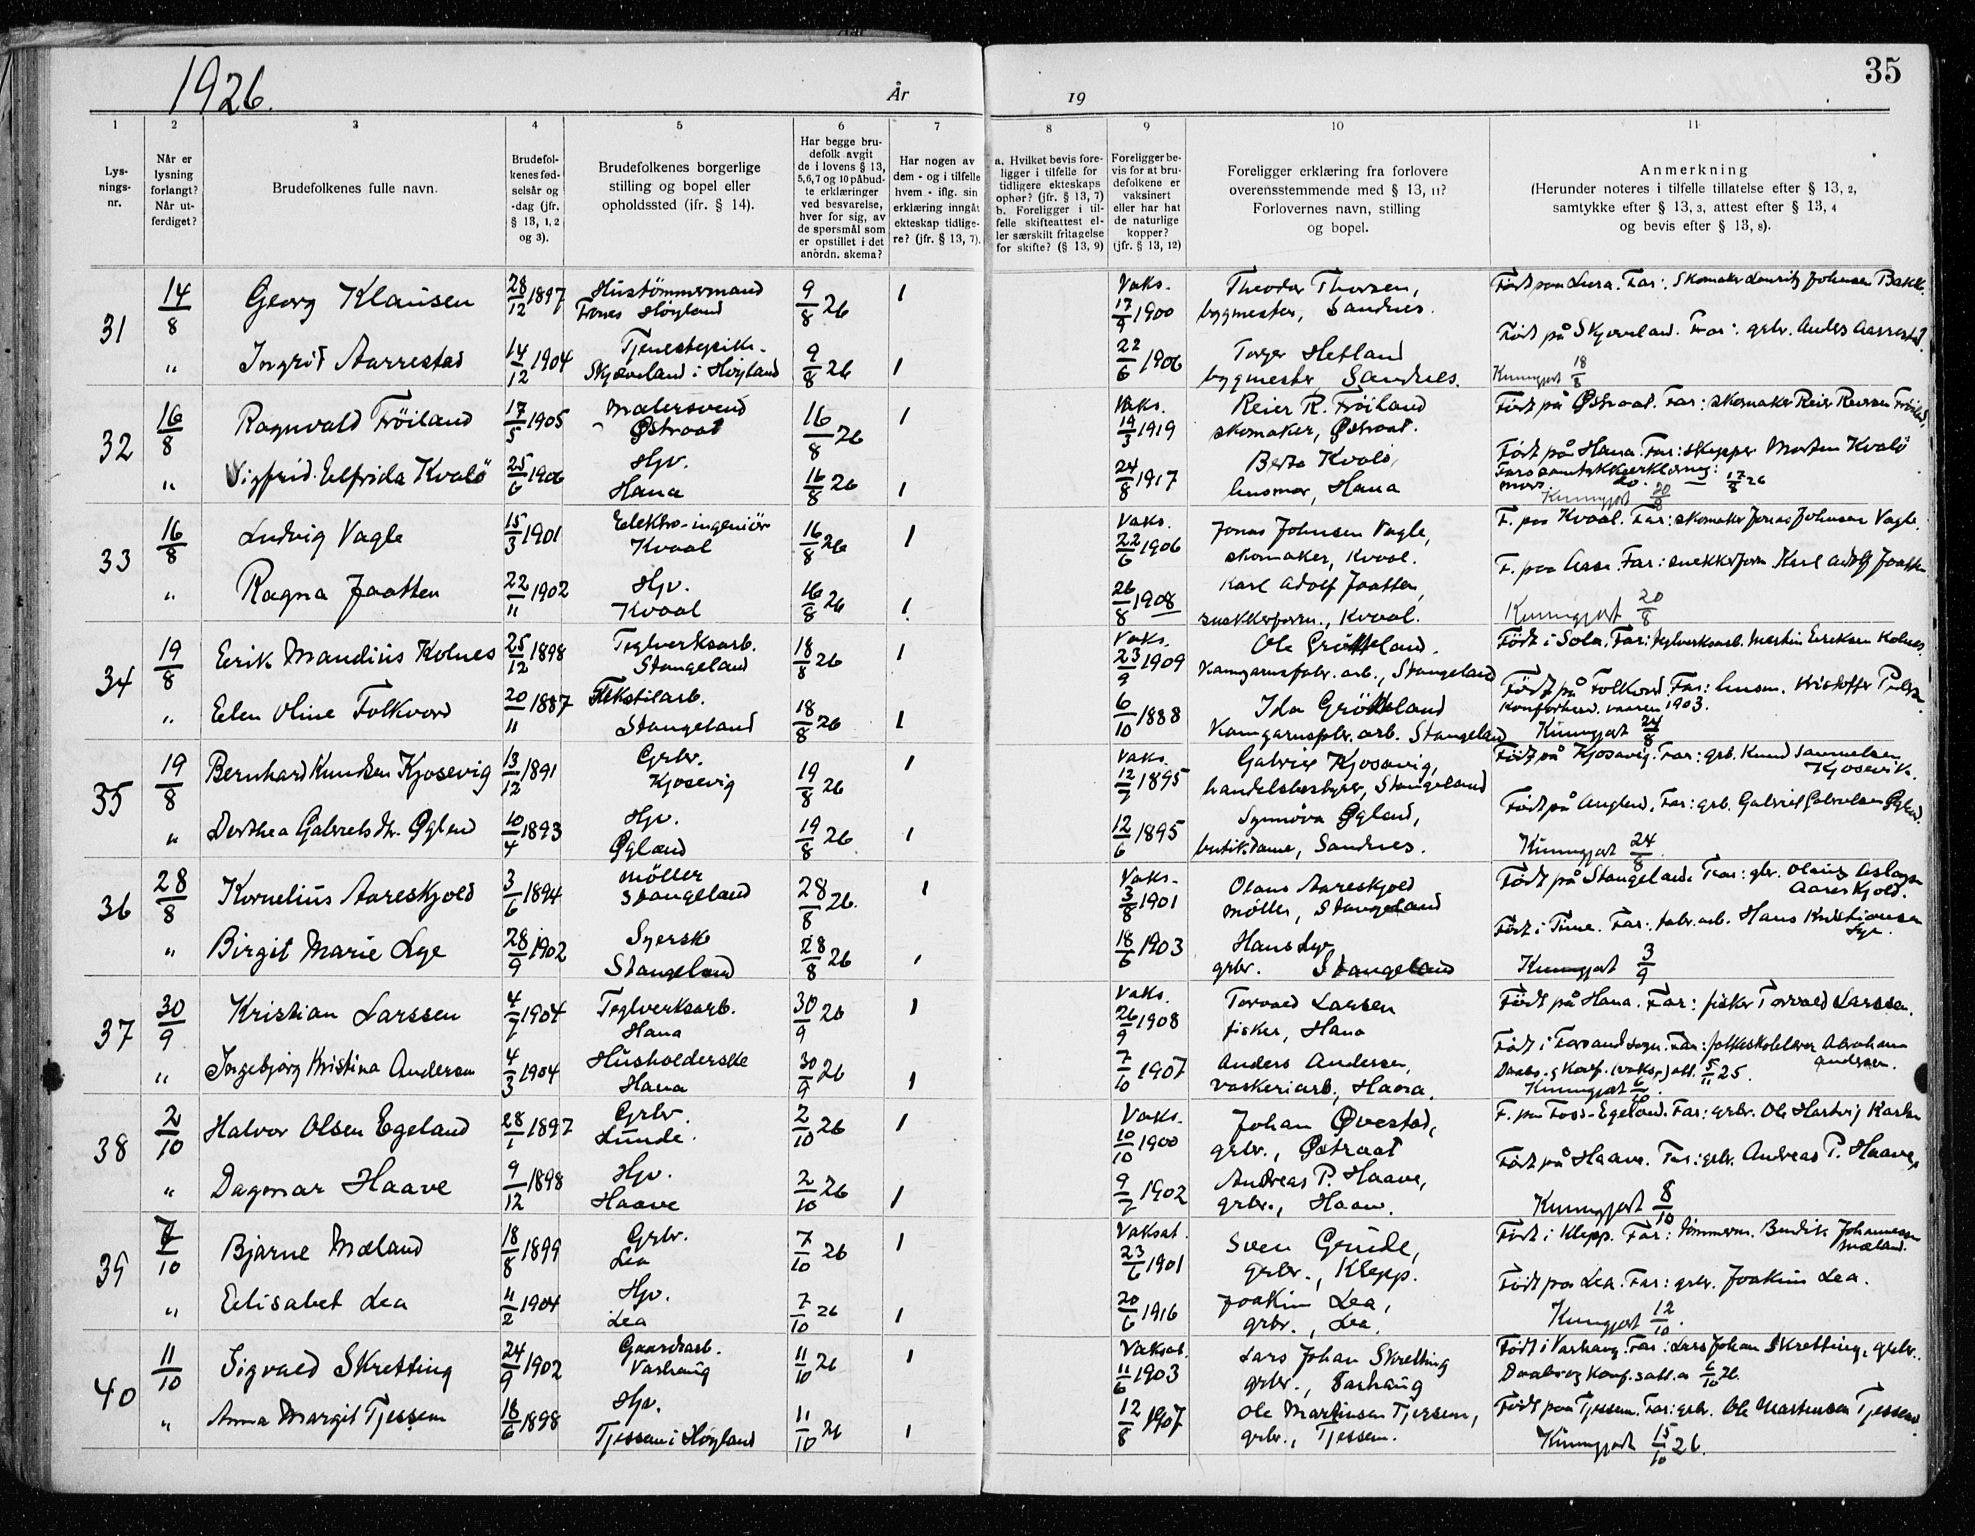 1926.
År
19
35
1
2
3
4
5
6
7
8
9
10
11
Lys-
nings-
nr.
Når er
lysning
forlangt?
Når ut-
ferdiget?
Brudefolkenes fulle navn.
Brudefol-
kenes fød-
selsår og
-dag (jfr.
§ 13, 1, 2
og 3).
Brudefolkenes borgerlige
stilling og bopel eller
opholdssted (jfr. § 14).
Har begge bru-
defolk avgit
de i lovens § 13,
5,6,7 og 10 påbud-
te erklæringer
ved besvarelse,
hver for sig, av
de spørsmål som
er opstillet i det
anordn. skema?
Har nogen av
dem - og i tilfelle
hvem - iflg. sin
erklæring inngåt
ekteskap tidlige-
re? (jfr. § 13, 7).
a. Hvilket bevis fore-
ligger i tilfelle for
tidligere ekteskaps
ophør? (jfr. § 13, 7)
b. Foreligger i til-
felle skifteattest el-
ler særskilt fritagelse
for skifte? (§ 13, 9)
Foreligger be-
vis for at bru-
defolkene er
vaksinert
eller har hat
de naturlige
kopper?
(jfr. § 13, 12)
Foreligger erklæring fra forlovere
overensstemmende med § 13, 11?
Forlovernes navn, stilling
og bopel.
Anmerkning
(Herunder noteres i tilfelle tillatelse efter § 13, 2,
samtykke efter § 13, 3, attest efter § 13, 4
og bevis efter § 13, 8).
31 14/8 Georg Klausen 28/12 1897 Hustømmermand Høyland 9/8 26 1 Vaks. 17/9 1900 Theodor Thorsen, bygmester, Sandnes. Født paa Lura. Far: Skomaker Lauritz Johnsen Bakk.
" Ingrid Aarrestad 14/12 1904 Tjenestepike. Skjæveland i Høyland 9/8 26 1 22/6 1906 Torger Hetland bygmester, Sandnes. Født på Skjæveland. Far: grbr. Aarrestad. Kunngjort 18/8
32 16/8 Ragnvald Frøiland 17/5 1905 Malersvend Østraat 16/8 26 1 Vaks. 19/3 1919 Reier R. Frøiland skomaker, Østraat. Født på Østraat. Far: skomaker Reier Frøiland,
" Sigfrid Elfrida Kvalø 25/6 1906 Hjv. Hana 16/8 26 1 24/8 1917 Berta Kvalø, husmor, Hana Født på Hana. Far: skipper Morten Kvalø Fars samtykkeerklæring: 17/8 26 mors do. Kunngjort 20/8
33 16/8 Ludvig Vagle 15/3 1901 Elektro-ingeniør Kvaal 16/8 26 1 Vaks. 22/6 1906 Jonas Johnsen Vagle, skomaker, Kvaal. F. paa Kvaal. Far: skomaker Jonas Johnsen Vagle.
" Ragna Jaatten 22/11 1902 Hjv. Kvaal 16/8 26 1 26/8 1908 Karl Adolf Jaatten, snekkerform., Kvaal. F. paa Far: snekkerform Karl Adolf Jaatten Kunngjort 20/8
34 19/8 Erik Mandius Kolnes 25/12 1898 Teglverksarb. Stangeland 18/8 26 1 Vaks. 23/9 1909 Ole Stangeland Født i Sola. Far: teglverksarb. Martin Eriksen Kolnes.
" Elen Oline Folkvord 20/11 1887 Tekstilarb. Stangeland 18/8 26 1 6/10 1888 Ida Stangeland Født på Folkvord. Far: husm. Kristoffer Konfirmerd. vaaren 1903. Kunngjort 24/8
35 19/8 Bernhard Knudsen Kjosevig 13/12 1891 Grbr. Kjosevig 19/8 26 1 Vaks. 12/7 1895 Gabriel Kjosavig, handelsbestyrer, Stangeland Født på Kjosavig. Far: grb. Knud Samuelsen Kjosevik.
" Dorthea Gabriels dtr. Øglend 10/4 1893 Hjv. Øglænd 19/8 26 1 12/6 1895 Synnøva Øgland, butikdame, Sandnes. Født på Far: grb. Gabriel Gabrielsen Øglend. Kunngjort 24/8.
36 28/8 Kornelius Aareskjold 3/6 1894 Møller Stangeland 28/8 26. 1 Vaks. 3/8 1901 Olaus Aareskjold møller, Stangeland Født på Stangeland. Far: grbr. Aslagsen Aareskjold.
" Birgit Marie Lye 28/9 1902 Syerske Stangeland 28/8 26 1 18/6 1903 Hans Lye grbr. Stangeland Født i Time. Far: fabr. arb. Hans Kristiansen Lye. Kunngjort 3/9
37 30/9 Kristian Larssen 4/7 1904 Teglverksarb. Hana 30/9 26 1 Vaks. 26/9 1908 Torvald Larsen fisker, Hana Født på Hana. Far: fisker Torvald Larssen.
" Ingebjørg Kristina Andersen 4/3 1904 Husholderske Hana 30/9 26 1 7/10 1907 Anders Andersen, vaskeriarb., Hana. Født i Forsand sogn. Far: folkeskolelærer Abraham Andersen. Daabs- og konf. (vaks.) att. 5/11 25. Kunngjort 6/10.
38 2/10 Halvor Olsen Egeland 28/1 1897 Grbr. Lunde. 2/10 26 1 Vaks. 10/10 1900 Johan Øvestad, grbr., Østraat F. paa Foss-Egeland. Far: grbr. Ole Hartvig
" Dagmar Haave 9/12 1898 Hjv. Haave 2/10 26 1 9/7 1902 Andreas P. Haave, grbr., Haave. Født på Haave. Far: grbr. Andreas P. Haave. Kunngjort 8/10
39 7/10 Bjarne Mæland 18/8 1899 Grbr. Lea 7/10 26 1 Vaksat. 23/6 1901 Sven Grude, grbr., Klepp. Født i Klepp. Far: tømmerm. Bendik Johannessen Mæland.
" Elisabet Lea 11/2 1904 Hjv. Lea 7/10 26 1 20/6 1916 Joakim Lea, grbr., Lea. Født paa Lea. Far: grbr. Joakim Lea. Kunngjort 12/10.
40 11/10 Sigvald Skretting 24/9 1902 Gaardsarb. Varhaug 11/10 26 1 Vaksat. 11/6 1903 Lars Johan Skretting grbr., Varhaug Født i Varhaug. Far: Lars Johan Skretting, grbr. Daabs og konf. att. 6/10 26.
" Anna Margit Tjessem 18/6 1898 Hjv. Tjessem i Høyland 11/10 26 1 12/8 1907 Ole Martinsen Tjessem, grbr., Tjessem. Født paa Tjessem. Far: grbr. Ole Martinsen Tjessem. Kunngjort 15/10 26.